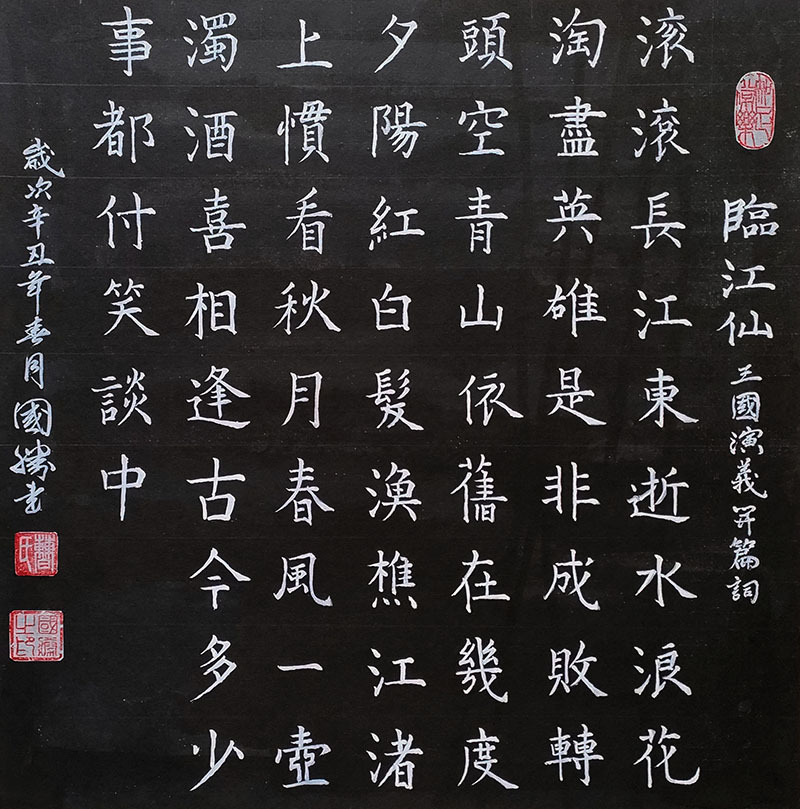 知足常樂
臨江仙 三國演義开篇詞
滚滚長江東逝水浪花
淘盡英雄是非成敗轉
頭空青山依舊在幾度
夕陽紅白髮漁樵江渚
上慣看秋月春風一壺
濁酒喜相逢古今多少
事都付笑談中
歲次辛丑年春月國勝書
國勝之印